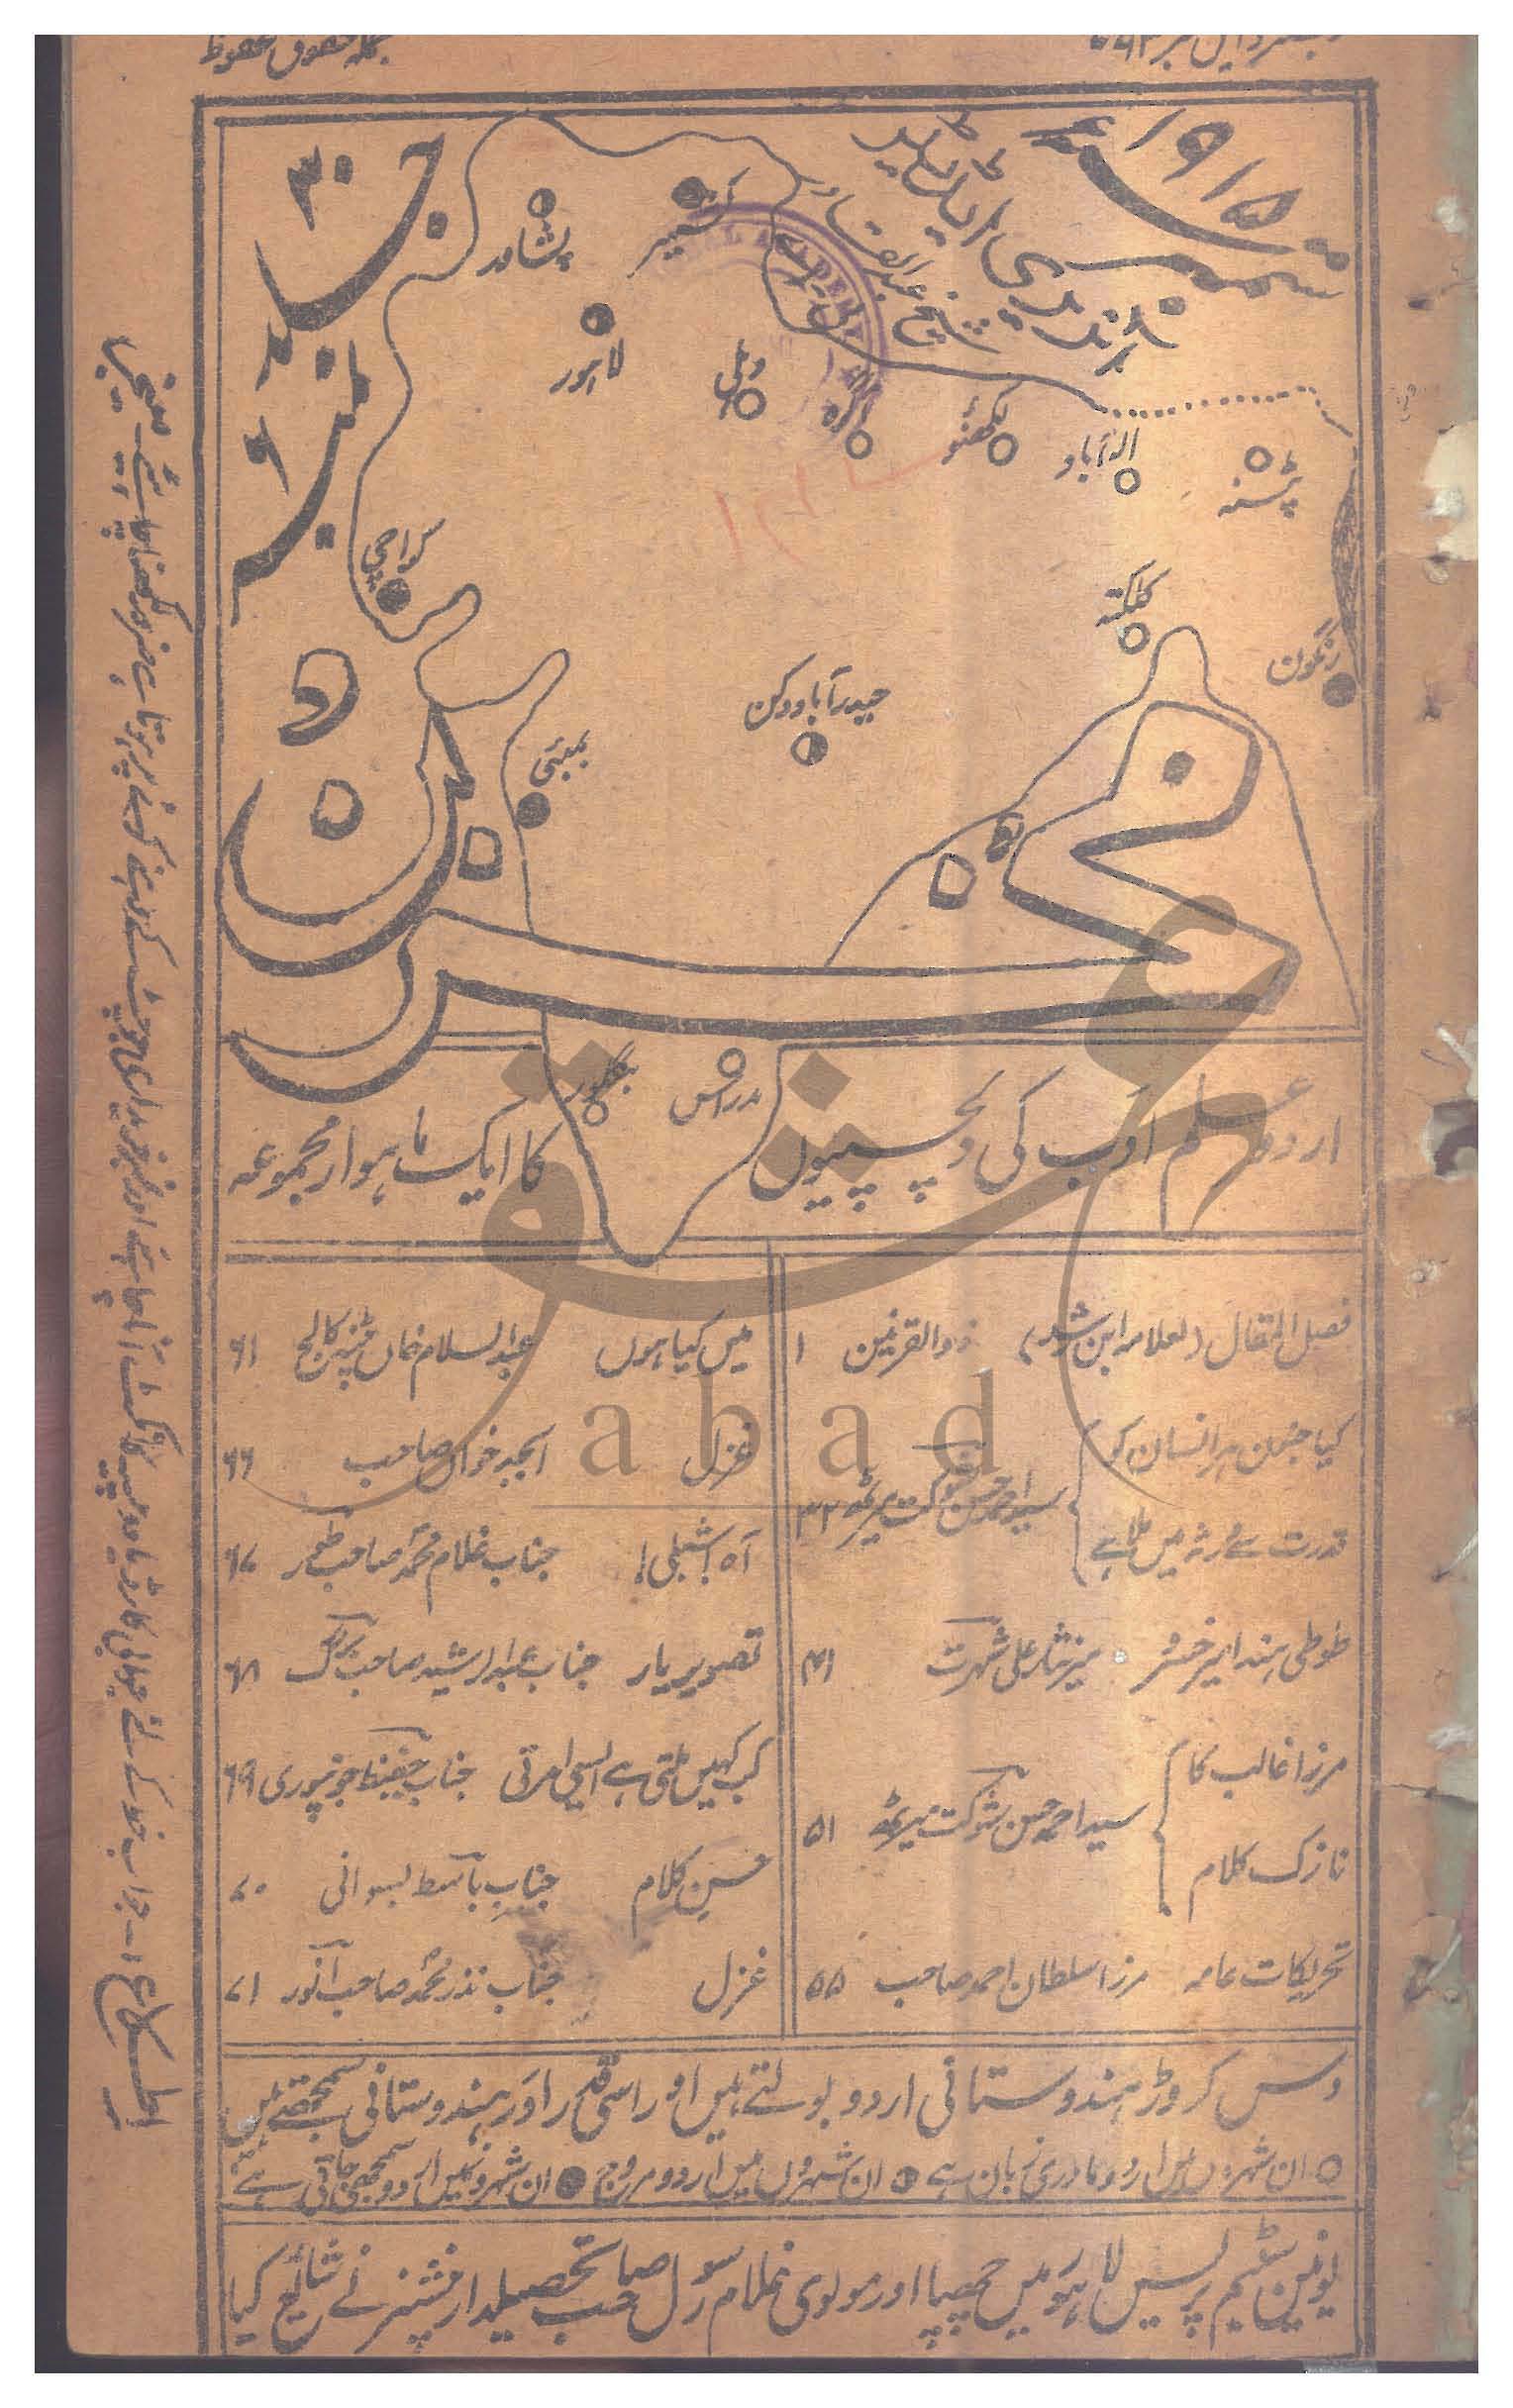 جملہ حقوق محفوظ
ستمبر ۱۹۱۵ء
آنریری ایڈیٹر
شیخ عبدالقادر
جلد ۳۰
نمبر ۶
مخزن
پشاور
کشمیر
لاہور
دہلی
آگرہ
لکھنؤ
الہ آباد
پٹنہ
کراچی
کلکتہ
رنگون
حیدرآباد دکن
بمبئی
بنگلور
مدراس
اردو علم ادب کی دلچسپیوں کا ایک ماہوار مجموعہ
فصل المقال (لعلامہ ابن رشد) ذوالقرنین ۱
کیا جنون ہر انسان کو قدرت سے ورثہ میں ملا ہے سید احمد حسن شوکت میرٹھ ۳۲
طوطی ہند امیر خسرو میر نثار علی شہرت ۴۱
مرزا غالب کا نازک کلام سید احمد حسن شوکت میرٹھ ۵۱
تحریکات عامہ مرزا سلطان احمد صاحب ۵۵
میں کیا ہوں عبدالسلام خاں پٹنہ کالج ۶۱
غزل امجد خواں صاحب ۶۶
آہ! شبلی! جناب غلام محمد صاحب طور ۶۷
تصویر یار جناب عبدالرشید صاحب ۶۸
کب کہیں ملتی ہے ایسی امرتی جناب حفیظ جونپوری ۶۹
حسن کلام جناب باسط بسوانی ۷۰
غزل جناب نذر محمد صاحب انور ۷۱
دس کروڑ ہندوستانی اردو بولتے ہیں اور اسی قدر اور ہندوستانی سمجھتے ہیں
ان شہروں میں اردو مادری زبان ہے ان شہروں میں اردو مروج ان شہروں میں اردو سمجھی جاتی ہے
یونین سٹیم پریس لاہور میں چھپا اور مولوی غلام رسول صاحب تحصیلدار پنشنر نے شائع کیا
abad